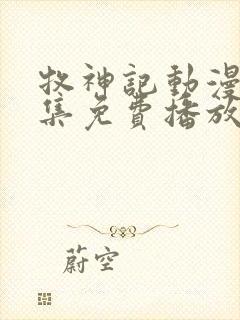 牧神記動漫
集免費播放
蔚空